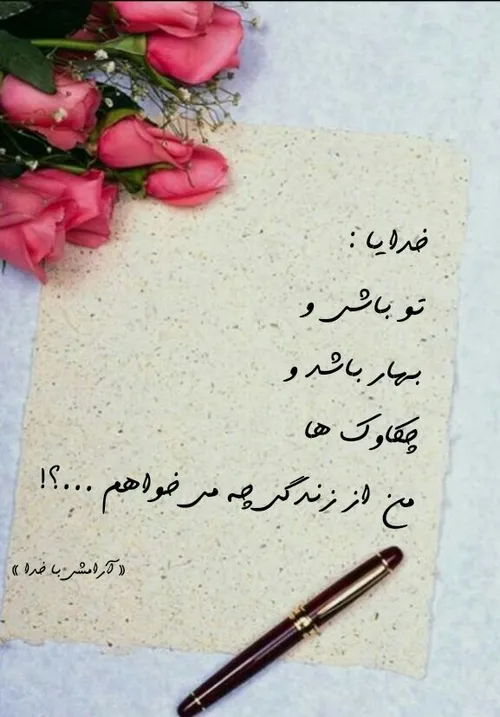 خدایا :
تو باشی و
بهار باشد و
چکاوک ها
من از زندگی چه می خواهم ...؟!
« آرامش با خدا »